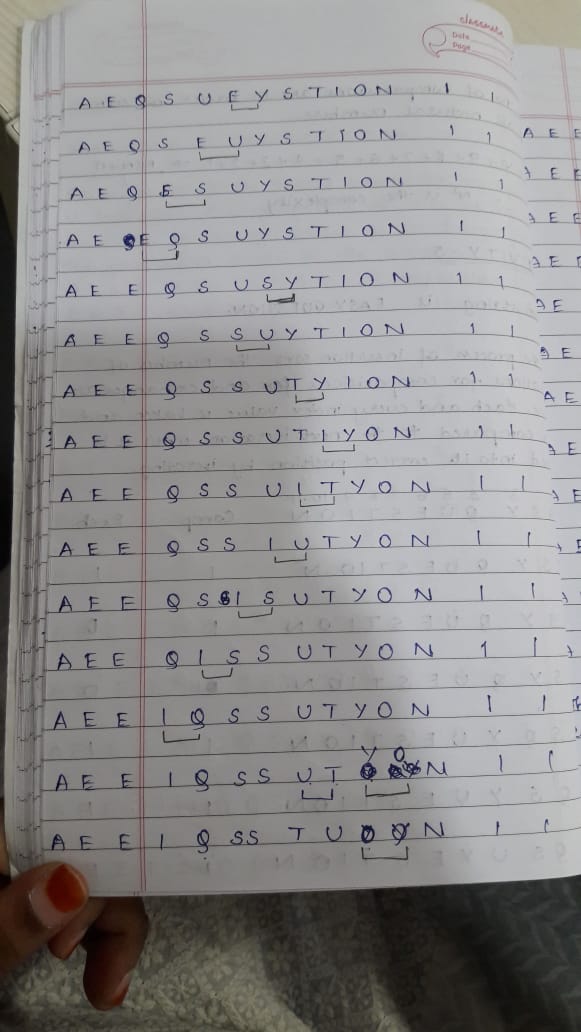 classmate
Date
Page
A E Q S U E Y S T I O N 1 1
A E Q S E U Y S T I O N 1 1
A E Q E S U Y S T I O N 1 1
A E E Q S U Y S T I O N 1 1
A E E Q S U S Y T I O N 1 1
A E E Q S S U Y T I O N 1 1
A E E Q S S U T Y I O N 1 1
A E E Q S S U T I Y O N 1 1
A E E Q S S U I T Y O N 1 1
A E E Q S S I U T Y O N 1 1
A E E Q S I S U T Y O N 1 1
A E E Q I S S U T Y O N 1 1
A E E I Q S S U T Y O N 1 1
A E E I Q S S U T Y O N 1 1
A E E I Q S S T U O Y N 1 1
A E E
A E E
A E E
A E E
A E
A E
A E
A E
A E